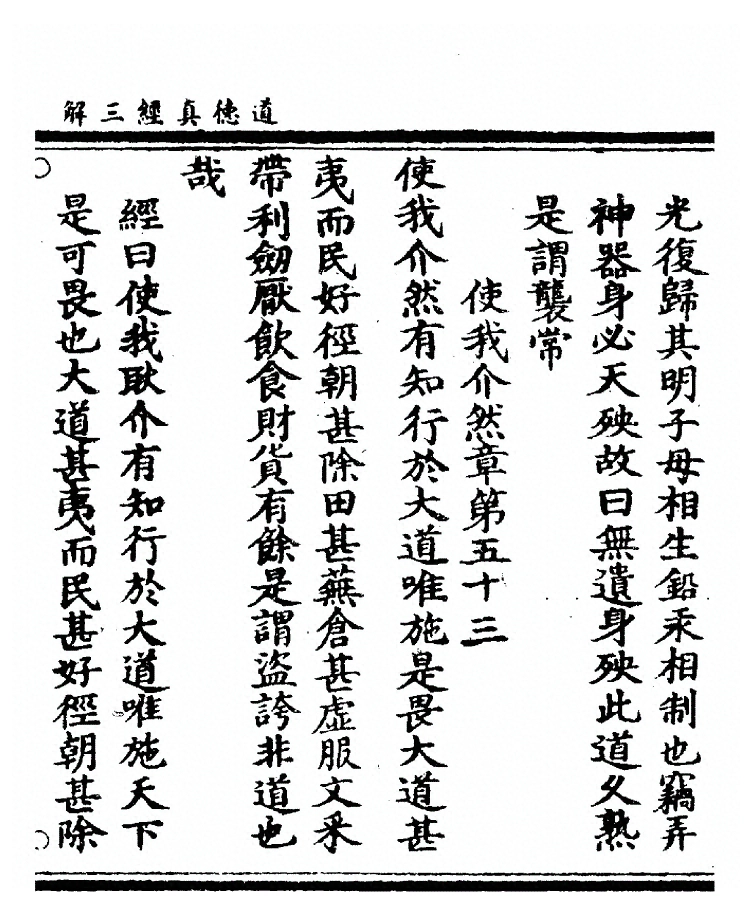 道德真經三解
光復歸其明子母相生鉛汞相制也竊弄
神器身必天殃故曰無遺身殃此道久熟
是謂襲常
使我介然章第五十三
使我介然有知行於大道唯施是畏大道甚
夷而民好徑朝甚除田甚蕪倉甚虛服文采
帶利劒厭飲食財貨有餘是謂盜誇非道也
哉
經曰使我耿介有知行於大道唯施天下
是可畏也大道甚夷而民甚好徑朝甚除